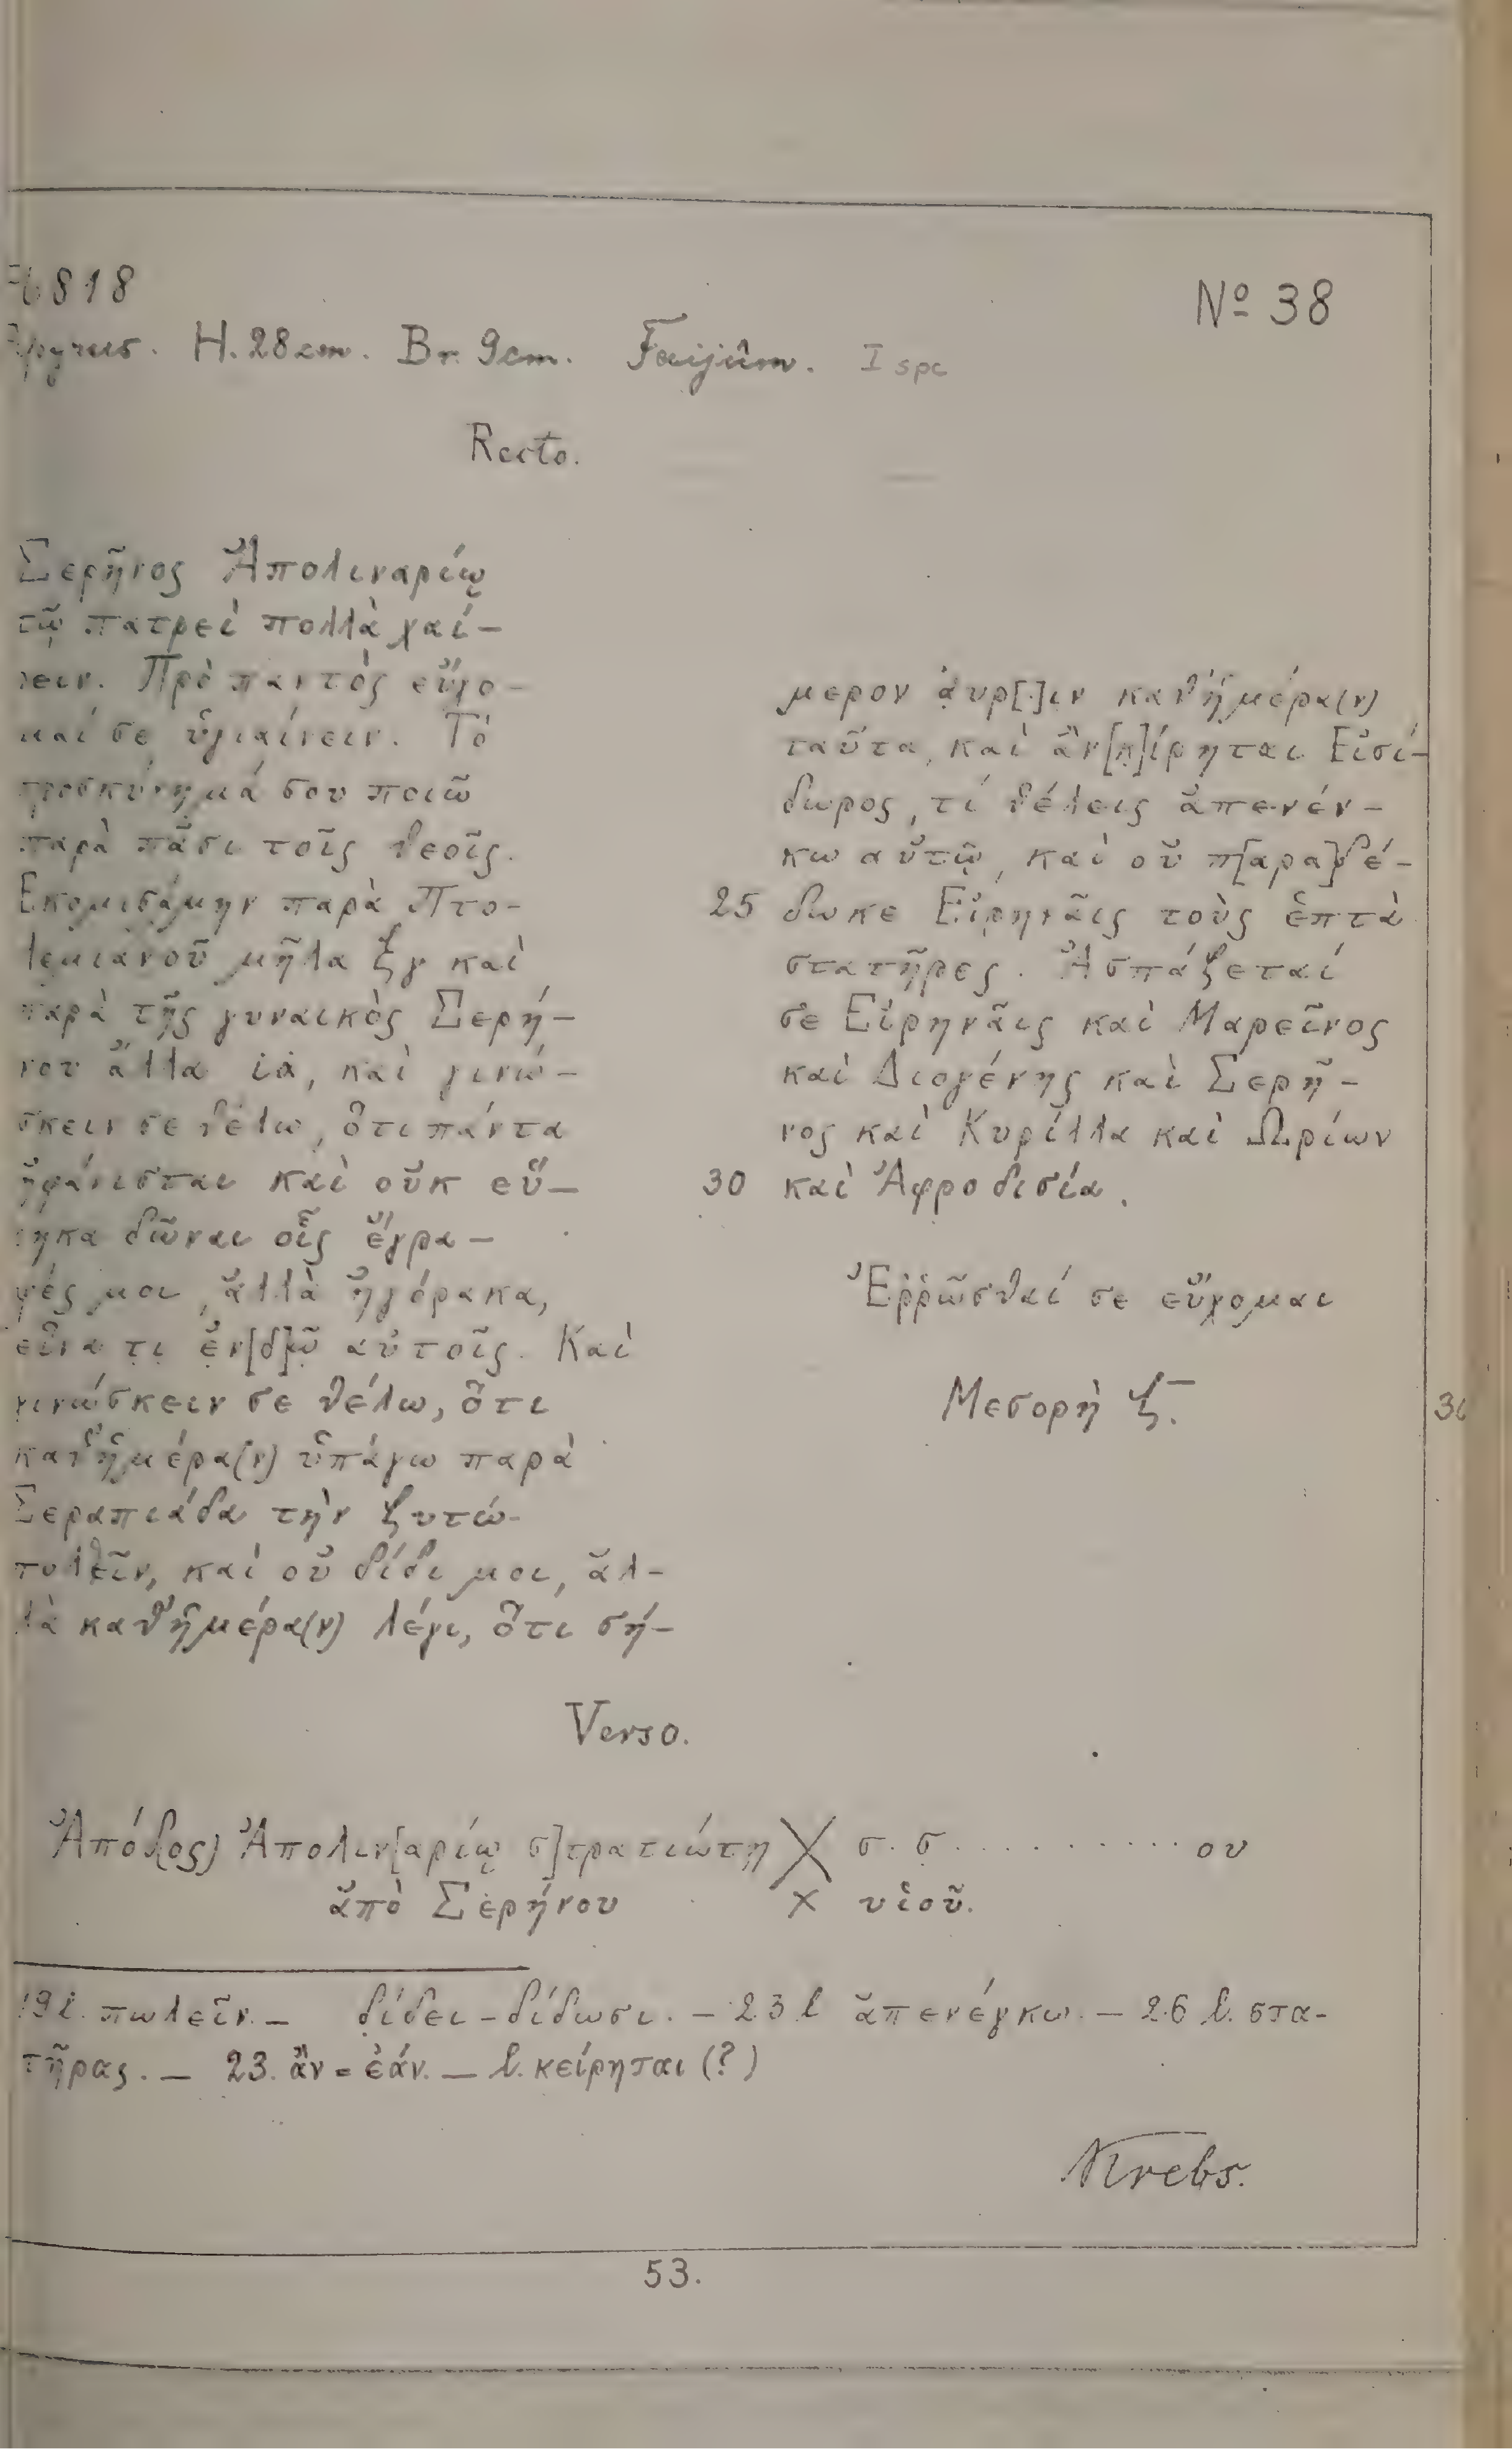 6818
№ 38
Papyrus. H. 28 cm. Br. 9 cm. Faijûm. I spc
Recto.
Σερῆνος Ἀπολιναρίῳ
τῷ πατρεὶ πολλὰ χαί–
ρειν. Πρὸ παντὸς εὔχο–
μαί σε ὑγιαίνειν. Τὸ
προσκύνημά σου ποιῶ
παρὰ πᾶσι τοῖς θεοῖς.
Ἐκομισάμην παρὰ Πτο–
λεμιανοῦ μῆλα ξγ καὶ
παρὰ τῆς γυναικὸς Σερή–
νου ἄλλα ια, καὶ γινώ–
σκειν σε θέλω, ὅτι πάντα
ἠφάνισται καὶ οὐκ εὕ–
ρηκα δῶναι οἷς ἔγρα–
ψές μοι, ἀλλὰ ἠγόρακα,
εἵνα τι ἐν[δ]ῶ αὐτοῖς. Καὶ
γινώσκειν σε θέλω, ὅτι
καθ᾽ἡμέρα(ν) ὑπάγω παρὰ
Σεραπιάδα τὴν ζυτώ–
πολεῖν, καὶ οὐ δίδι μοι, ἀλ–
λὰ καθ᾽ἡμέρα(ν) λέγι, ὅτι σή–
μερον ἀυρ[.]ιν καθ᾽ἡμέρα(ν)
ταῦτα, καὶ ἂν [κ]ίρηται Εἰσί–
δωρος, τί θέλεις ἀπενέν–
κω αὐτῷ, καὶ οὐ π[αρα]δέ–
25 δωκε Εἰρηνᾶις τοὺς ἑπτὰ
στατῆρες. Ἀσπάζεταί
σε Εἰρηνᾶις καὶ Μαρεῖνος
καὶ Διογένης καὶ Σερῆ–
νος καὶ Κυρίλλα καὶ Ὠρίων
30 καὶ Ἀφροδισία.
Ἐῤῥῶσθαί σε εὔχομαι
Μεσορὴ ζ̅.
Verso.
Ἀπόδ(ος) Ἀπολιν[αρίῳ σ]τρατιώτῃ X σ. σ.......... ου
ἀπὸ Σερήνου x υἱοῦ.
19 l. πωλεῖν. – δίδει – δίδωσι. – 23 l ἀπενέγκω. – 26 l. στα–
τῆρας. – 23. ἂν = ἐάν. – l. κείρηται (?)
Krebs.
53.